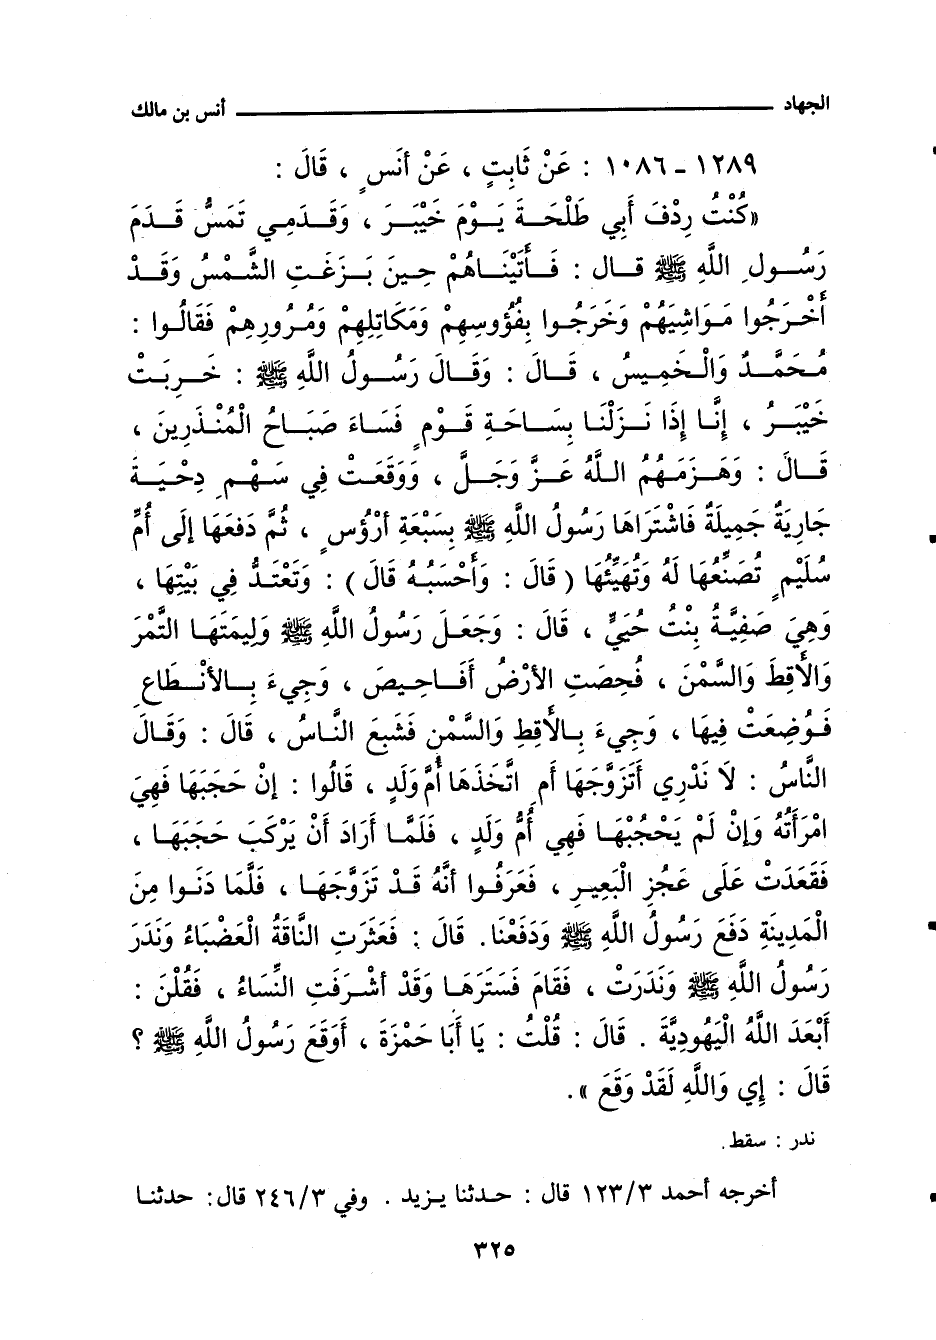 الجهاد ــــــــ أنس بن مالك
١٢٨٩ - ١٠٨٦ : عَنْ ثَابِتٍ ، عَنْ أَنَسٍ ، قَالَ :
«كُنْتُ رِدْفَ أَبِي طَلْحَةَ يَوْمَ خَيْبَرَ ، وَقَدَمِي تَمَسُّ قَدَمَ
رَسُولِ اللَّهِ ﷺ قال : فَأَتَيْنَاهُمْ حِينَ بَزَغَتِ الشَّمْسُ وَقَدْ
أَخْرَجُوا مَوَاشِيَهُمْ وَخَرَجُوا بِفُؤُوسِهِمْ وَمَكَاتِلِهِمْ وَمُرُورِهِمْ فَقَالُوا :
مُحَمَّدٌ وَالْخَمِيسُ ، قَالَ : وَقَالَ رَسُولُ اللَّهِ ﷺ : خَرِبَتْ
خَيْبَرُ ، إِنَّا إِذَا نَزَلْنَا بِسَاحَةِ قَوْمٍ فَسَاءَ صَبَاحُ الْمُنْذَرِينَ ،
قَالَ : وَهَزَمَهُمُ اللَّهُ عَزَّ وَجَلَّ ، وَوَقَعَتْ فِي سَهْمِ دِحْيَةَ
جَارِيَةٌ جَمِيلَةٌ فَاشْتَرَاهَا رَسُولُ اللَّهِ ﷺ بِسَبْعَةِ أَرْؤُسٍ ، ثُمَّ دَفَعَهَا إِلَى أُمِّ
سُلَيْمٍ تُصَنِّعُهَا لَهُ وَتُهَيِّئُهَا ( قَالَ : وَأَحْسَبُهُ قَالَ ) : وَتَعْتَدُّ فِي بَيْتِهَا ،
وَهِيَ صَفِيَّةُ بِنْتُ حُيَيٍّ ، قَالَ : وَجَعَلَ رَسُولُ اللَّهِ ﷺ وَلِيمَتَهَا التَّمْرَ
وَالأَقِطَ وَالسَّمْنَ ، فُحِصَتِ الأَرْضُ أَفَاحِيصَ ، وَجِيءَ بِالأَنْطَاعِ
فَوُضِعَتْ فِيهَا ، وَجِيءَ بِالأَقِطِ وَالسَّمْنِ فَشَبِعَ النَّاسُ ، قَالَ : وَقَالَ
النَّاسُ : لاَ نَدْرِي أَتَزَوَّجَهَا أَمِ اتَّخَذَهَا أُمَّ وَلَدٍ ، قَالُوا : إِنْ حَجَبَهَا فَهِيَ
امْرَأَتُهُ وَإِنْ لَمْ يَحْجُبْهَا فَهِي أُمُّ وَلَدٍ ، فَلَمَّا أَرَادَ أَنْ يَرْكَبَ حَجَبَهَا ،
فَقَعَدَتْ عَلَى عَجُزِ الْبَعِيرِ ، فَعَرَفُوا أَنَّهُ قَدْ تَزَوَّجَهَا ، فَلَمَّا دَنَوا مِنَ
الْمَدِينَةِ دَفَعَ رَسُولُ اللَّهِ ﷺ وَدَفَعْنَا. قَالَ : فَعَثَرَتِ النَّاقَةُ الْعَضْبَاءُ وَنَدَرَ
رَسُولُ اللَّهِ ﷺ وَنَدَرَتْ ، فَقَامَ فَسَتَرَهَا وَقَدْ أَشْرَفَتِ النِّسَاءُ ، فَقُلْنَ :
أَبْعَدَ اللَّهُ الْيَهُودِيَّةَ . قَالَ : قُلْتُ : يَا أَبَا حَمْزَةَ ، أَوَقَعَ رَسُولُ اللَّهِ ﷺ ؟
قَالَ : إِي وَاللَّهِ لَقَدْ وَقَعَ ».
ندر : سقط.
أخرجه أحمد ١٢٣/٣ قال : حدثنا يزيد . وفي ٢٤٦/٣ قال: حدثنا
٣٢٥